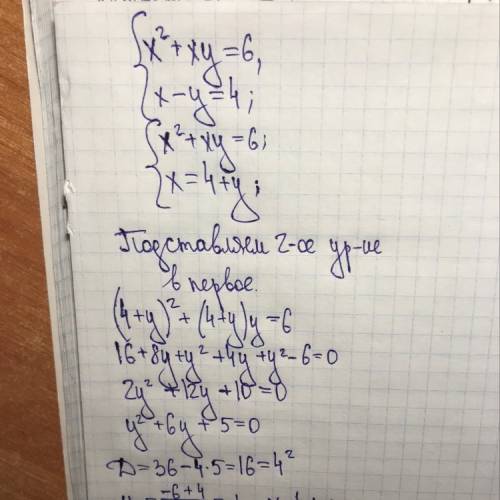 x² + xy = 6,
x - y = 4;
x² + xy = 6;
x = 4 + y;
Подставляем 2-ое ур-ие
в первое.
(4+y)² + (4+y)y = 6
16 + 8y + y² + 4y + y² - 6 = 0
2y² + 12y + 10 = 0
y² + 6y + 5 = 0
D = 36 - 4·5 = 16 = 4²
-6+4